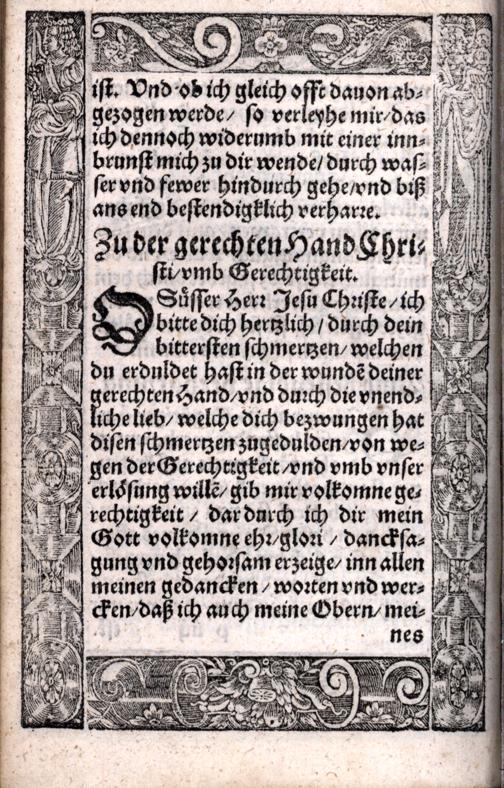 ist. Vnd ob ich gleich offt dauon ab⸗
gezogen werde/ so verleyhe mir/das
ich dennoch widerumb mit einer inn⸗
brunst mich zu dir wende/durch was⸗
ser vnd fewer hindurch gehe/vnd biß
ans end bestendigklich verharre.
Zu der gerechten Hand Chri⸗
sti/vmb Gerechtigkeit.
O Süsser Herr Jesu Christe/ich
bitte dich hertzlich/durch dein
bittersten schmertzen/welchen
du erduldet hast in der wundẽ deiner
gerechten Hand/vnd durch die vnend⸗
liche lieb/welche dich bezwungen hat
disen schmertzen zugedulden/von we⸗
gen der Gerechtigkeit/vnd vmb vnser
erlösung willẽ/gib mir volkomne ge⸗
rechtigkeit/ dardurch ich dir mein
Gott volkomne ehr/glori/ dancksa⸗
gung vnd gehorsam erzeige/inn allen
meinen gedancken/worten vnd wer⸗
cken/daß ich auch meine Obern/mei⸗
nes